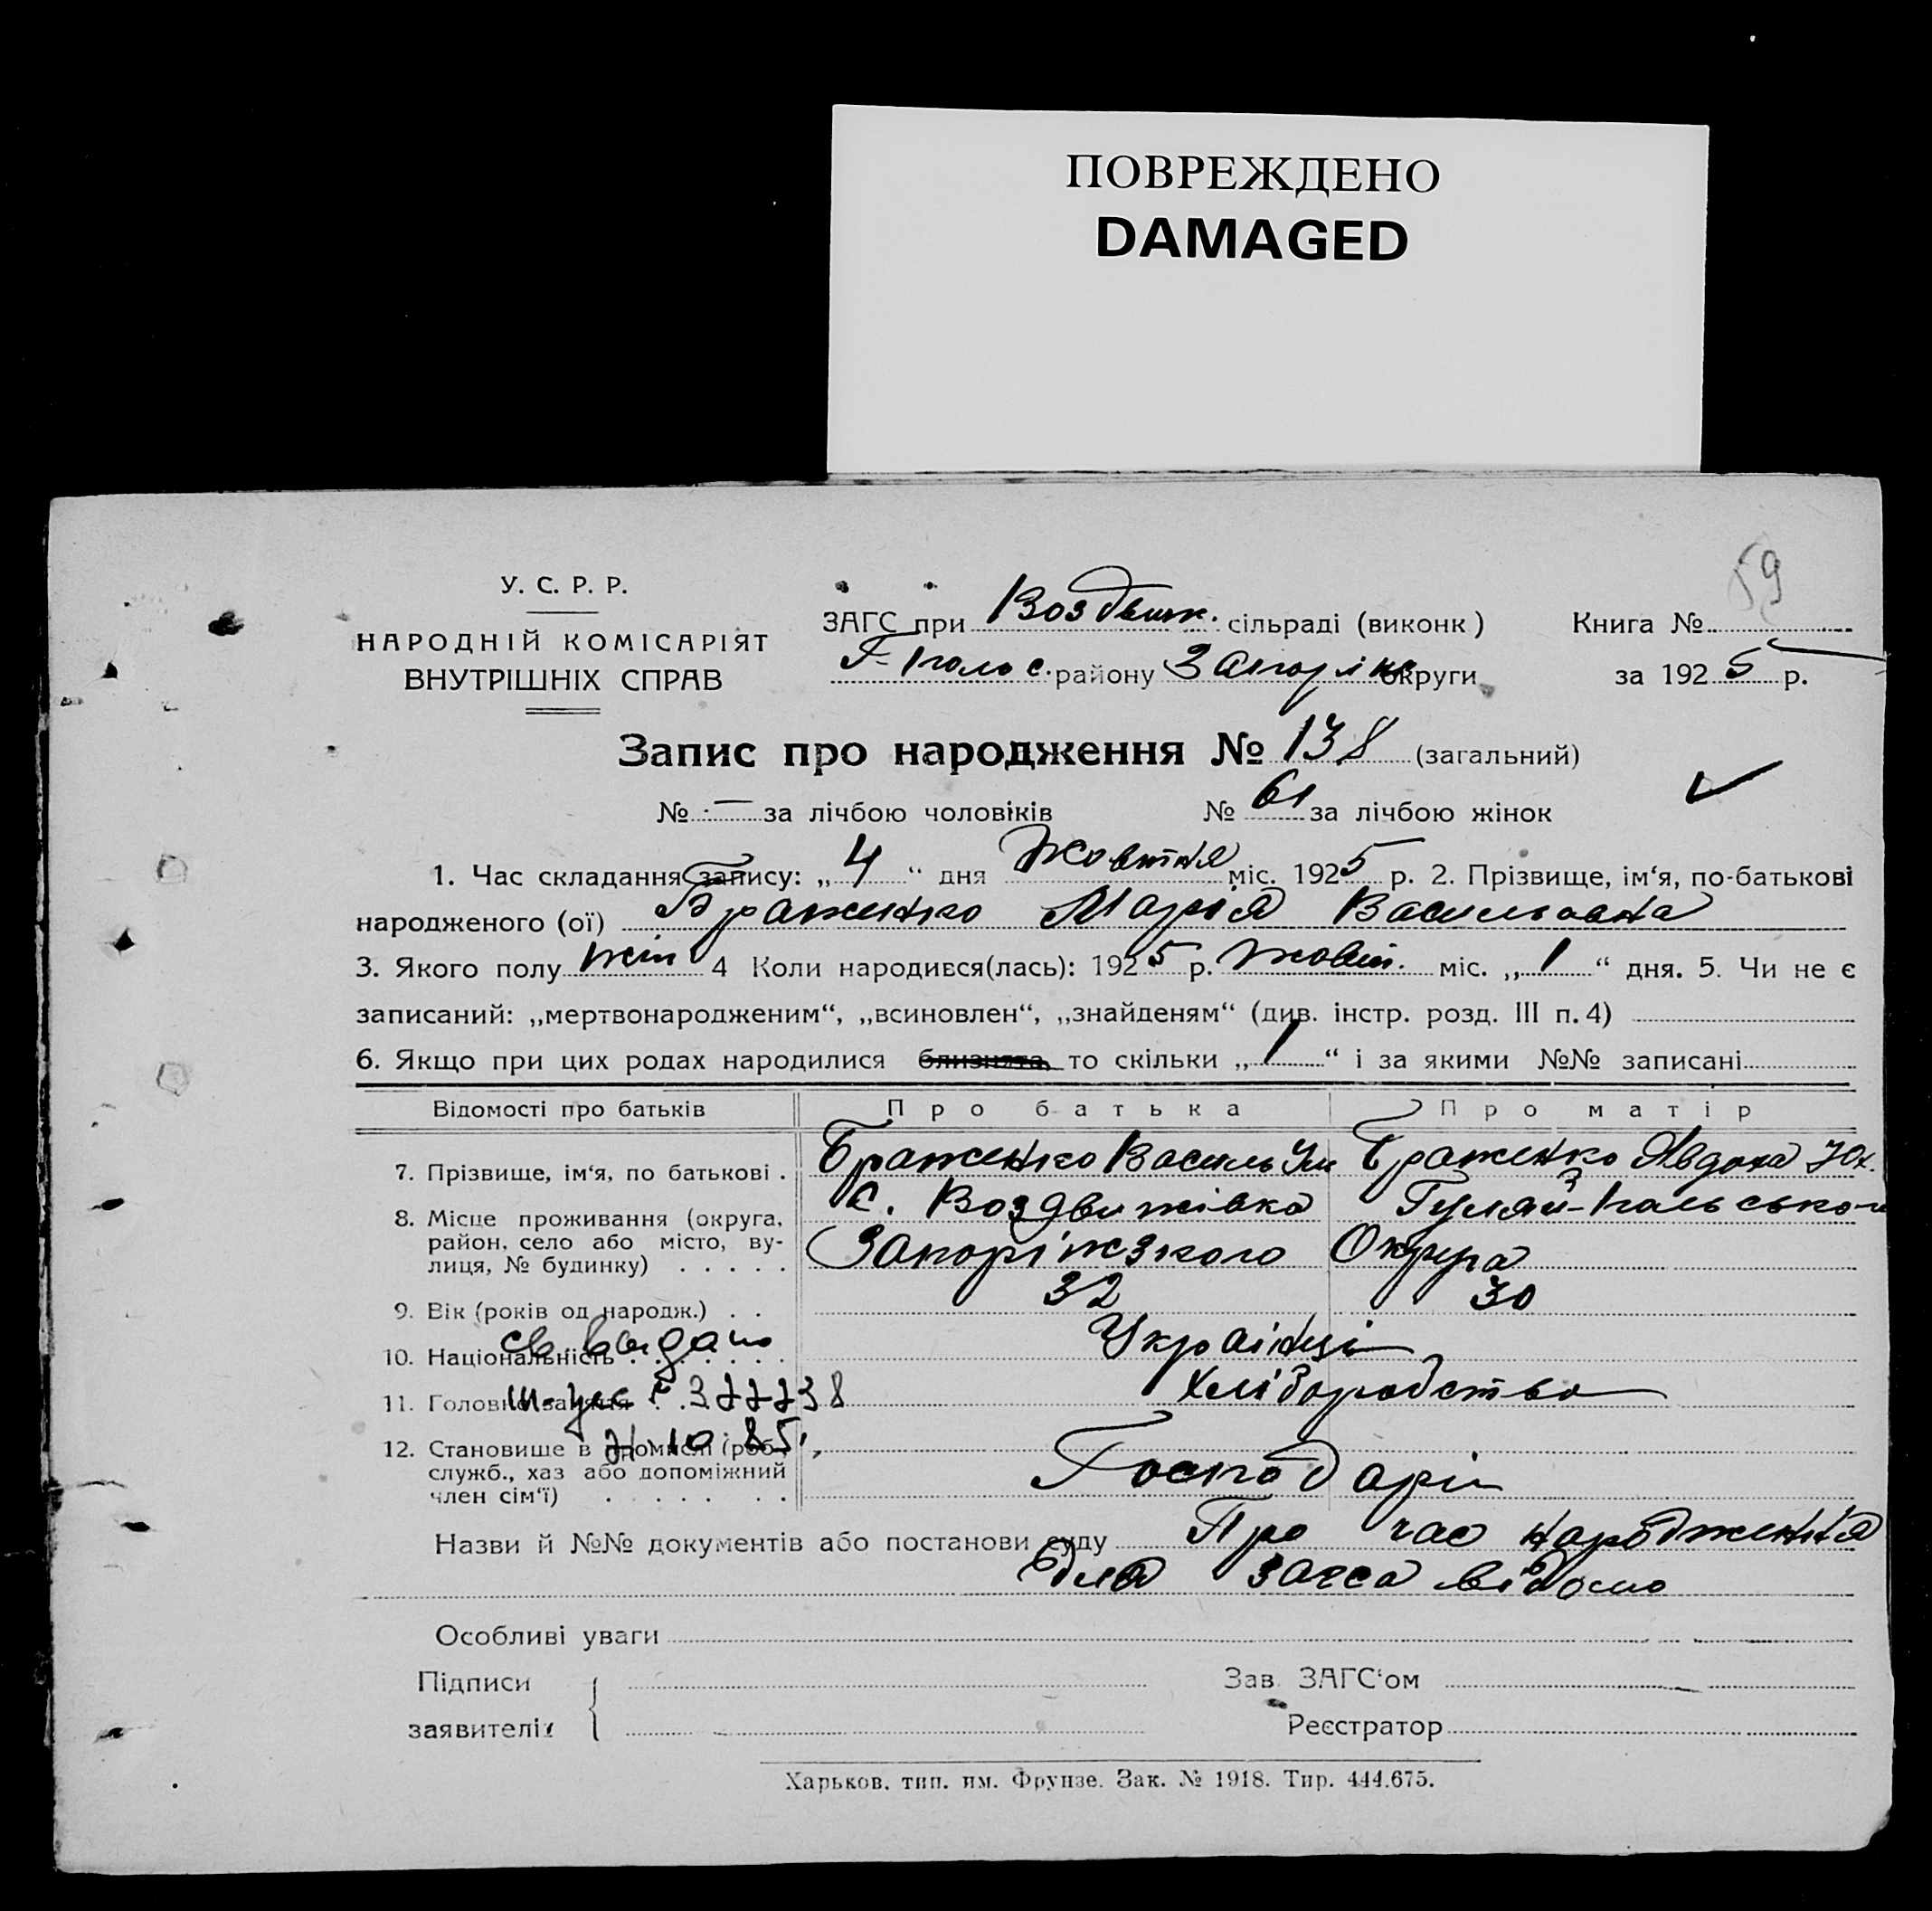 ПОВРЕЖДЕНО
DAMAGED
59
У. С. Р. Р.
НАРОДНІЙ КОМІСАРІЯТ
ВНУТРІШНІХ СПРАВ
ЗАГС при Воздвиж. сільраді (виконк)
Г-Поль с. району Запоріж округи
Книга №
за 1925 р.
Запис про народження № 138 (загальний)
№ — за лічбою чоловіків № 61 за лічбою жінок
1. Час складання запису: „4“ дня Жовтня міс. 1925 р. 2. Прізвище, ім‘я, по-батькові
народженого (ої) Браженко Марія Васильовна
3. Якого полу жін 4 Коли народився(лась): 1925 р. жовт. міс. „1“ дня. 5. Чи не є
записаний: „мертвонародженим“, „всиновлен“, „знайденям“ (див. інстр. розд. III п. 4)
6. Якщо при цих родах народилися близнята, то скільки „1“ і за якими №№ записані
Відомості про батьків Про батька Про матір
7. Прізвище, ім‘я, по батькові . Браженко Василь Браженко Явдоха
8. Місце проживання (округа, район, село або місто, вулиця, № будинку) . . . . . с. Воздвижівка Гуляй-Польсько
Запоріжзкого Округа
9. Вік (років од народж.) . . 32 30
10. Національність . . . . . . . Українці
св. видано
11. Головне заняття . . . Хліборобство
III-ЖС № 377738
12. Становище в промислі (роб., служб., хаз або допоміжний член сім‘ї) . . . . . . Господарі
21.10.85.
Назви й №№ документів або постанови суду Про час народження
для загса відомо
Особливі уваги
Підписи
заявителів
Зав. ЗАГС‘ом
Реєстратор
Харьков, тип. им. Фрунзе. Зак. № 1918. Тир. 444.675.